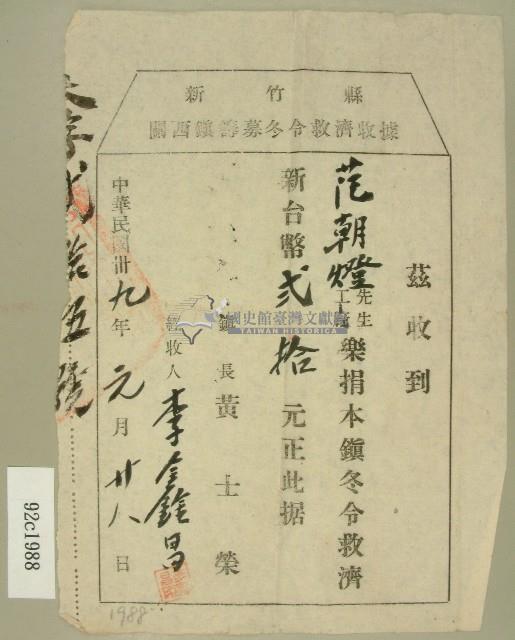 新竹縣
關西鎮籌募冬令救濟收據
茲收到
范朝燈先生樂捐本鎮冬令救濟
新台幣貳拾元正此据
鎮長黃士榮
經收人李金錢昌
中華民國卅九年元月廿八日
國史館臺灣文獻館
TAIWAN HISTORICA
92c1988
1988